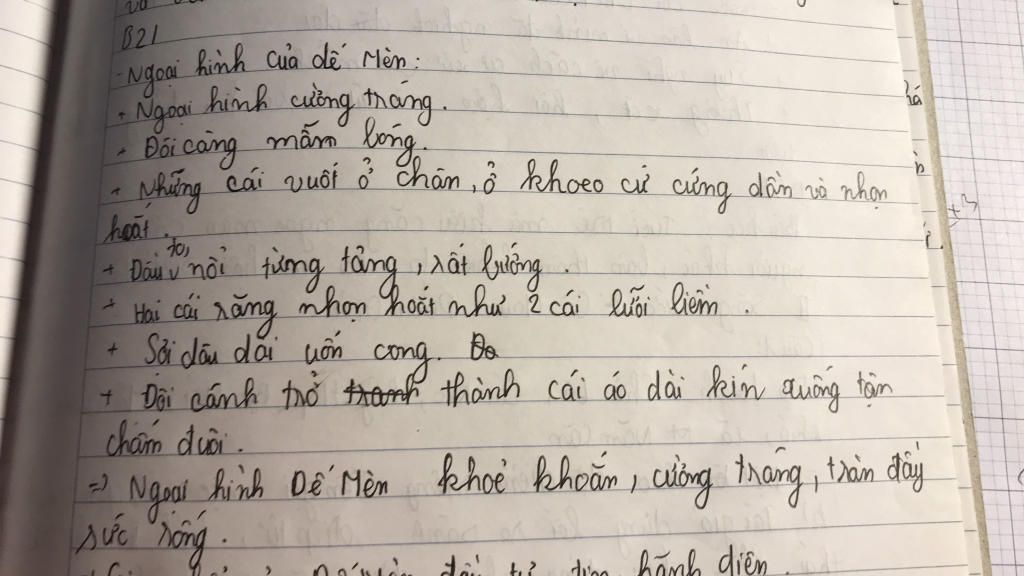 B21
- Ngoại hình của dế Mèn:
+ Ngoại hình cường tráng.
+ Đôi càng mẫm bóng.
+ Những cái vuốt ở chân, ở khoeo cứ cứng dần và nhọn
hoắt.
+ Đầu to, nổi từng tảng, rất bướng.
+ Hai cái răng nhọn hoắt như 2 cái lưỡi liềm.
+ Sợi dâu dài uốn cong.
+ Đội cánh trở tranh thành cái áo dài kín xuống tận
chấm đuôi.
=> Ngoại hình Dế Mèn khoẻ khoắn, cường tráng, tràn đầy
sức sống.
hãnh diện.